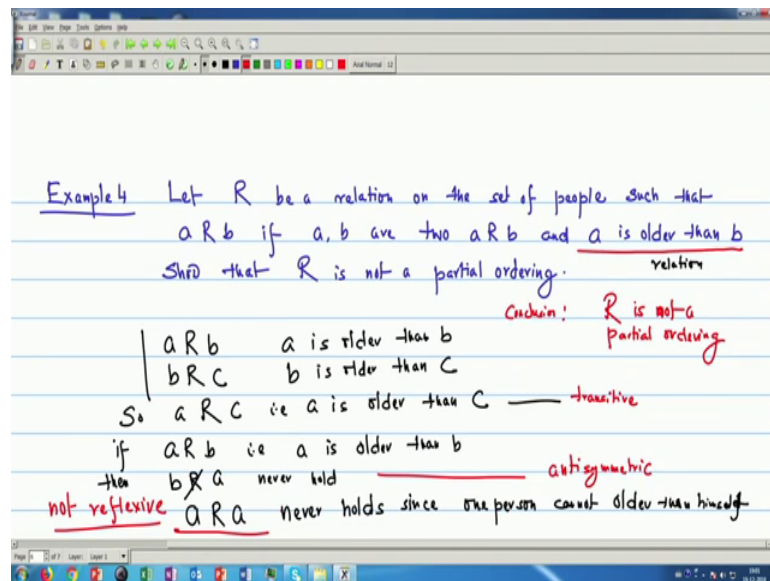 Journal
File Edit View Page Tools Options Help
Arial Normal 12
Example 4 Let R be a relation on the set of people such that
a R b if a, b are two a R b and a is older than b
relation
Show that R is not a partial ordering.
Conclusion: R is not a
partial ordering
a R b a is older than b
b R C b is older than C
So a R C i.e a is older than C transitive
if a R b i.e a is older than b
then b R̸ a never hold antisymmetric
not reflexive a R a never holds since one person cannot older than himself
Page of 7 Layer: Layer 1